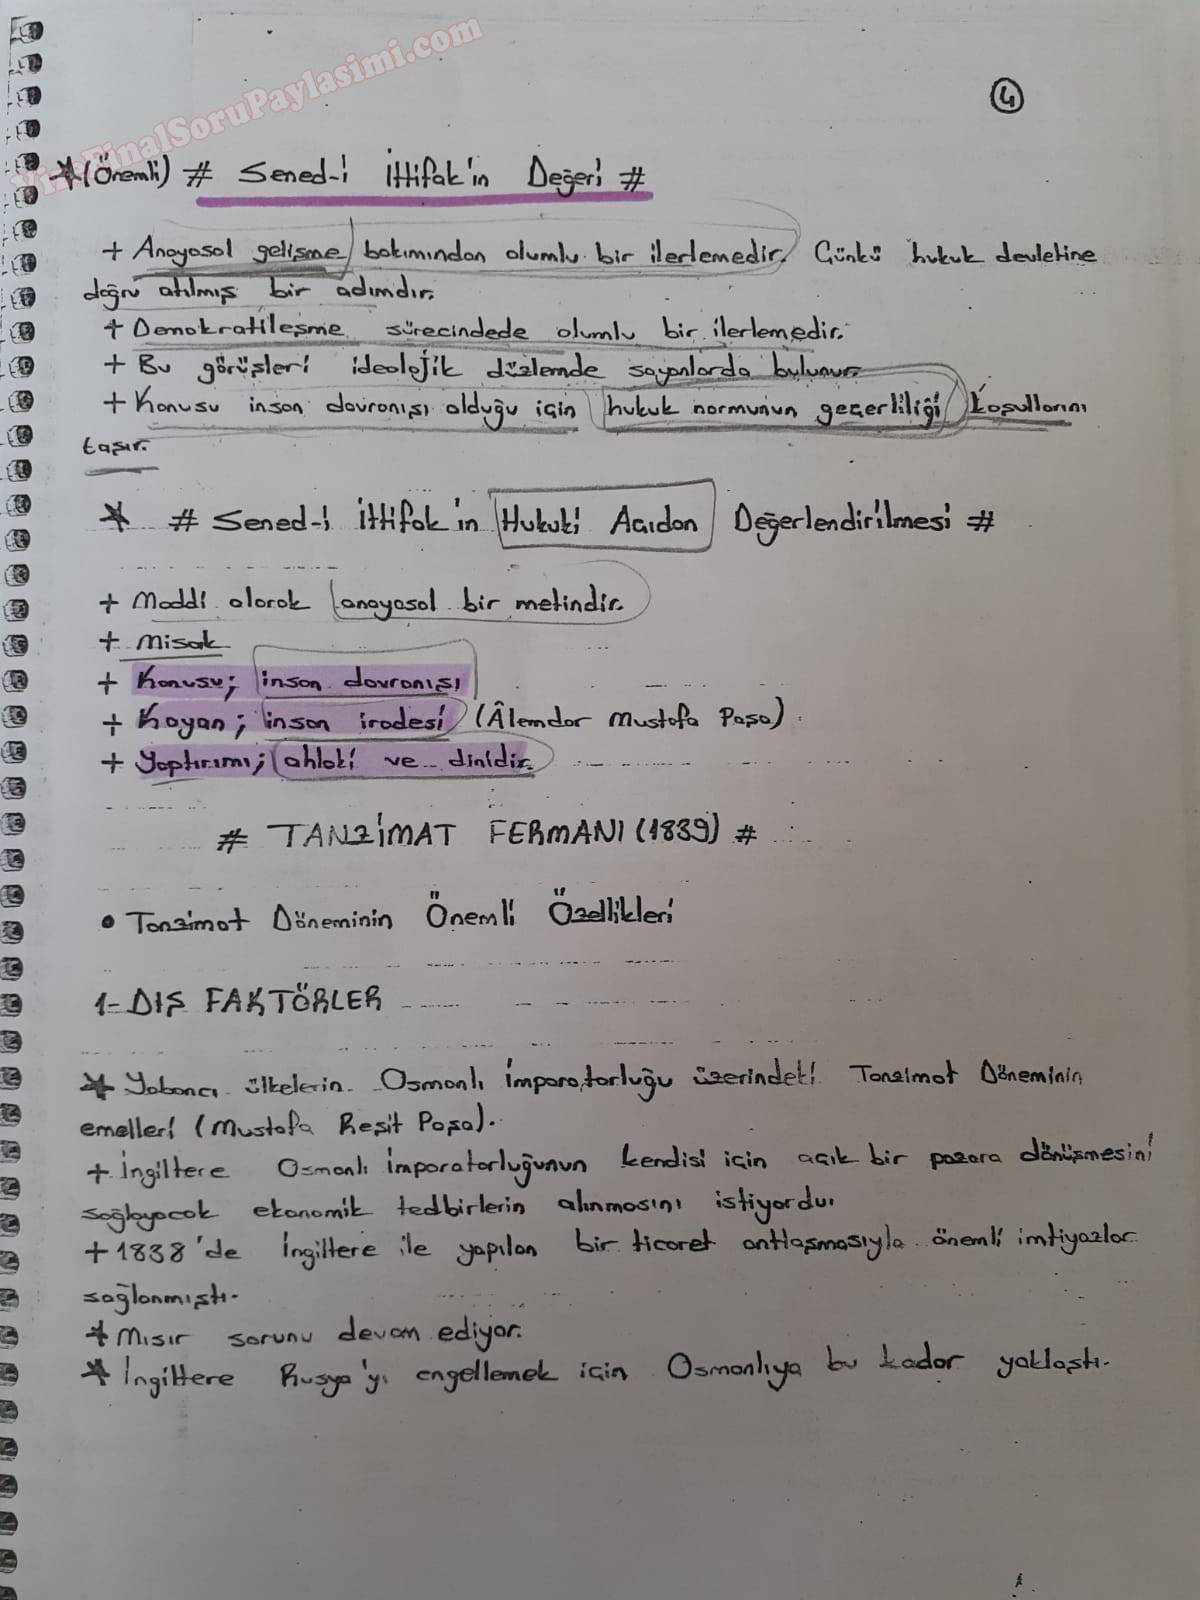 VizeFinalSoruPaylasimi.com
4
★(Önemli) # Sened-i İttifak'ın Değeri #
+ Anayasal gelişme bakımından olumlu bir ilerlemedir. Çünkü hukuk devletine
doğru atılmış bir adımdır.
+ Demokratileşme sürecindede olumlu bir ilerlemedir.
+ Bu görüşleri ideolojik düzlemde sayanlarda bulunur.
+ Konusu insan davranışı olduğu için hukuk normunun geçerliliği koşullarını
taşır.
★ # Sened-i İttifak'ın Hukuki Açıdan Değerlendirilmesi #
+ Maddi olarak anayasal bir metindir.
+ Misak
+ Konusu; insan davranışı
+ Koyan; insan iradesi (Âlemdar Mustafa Paşa)
+ Yaptırımı; ahlaki ve dinidir.
# TANZİMAT FERMANI (1839) #
• Tanzimat Döneminin Önemli Özellikleri
1- DIŞ FAKTÖRLER
★ Yabancı ülkelerin Osmanlı İmparatorluğu üzerindeki Tanzimat Döneminin
emelleri (Mustafa Reşit Paşa).
+ İngiltere Osmanlı İmparatorluğunun kendisi için açık bir pazara dönüşmesini
sağlayacak ekonomik tedbirlerin alınmasını istiyordu.
+ 1838'de İngiltere ile yapılan bir ticaret antlaşmasıyla önemli imtiyazlar
sağlanmıştı.
★ Mısır sorunu devam ediyor.
★ İngiltere Rusya'yı engellemek için Osmanlıya bu kadar yaklaştı.